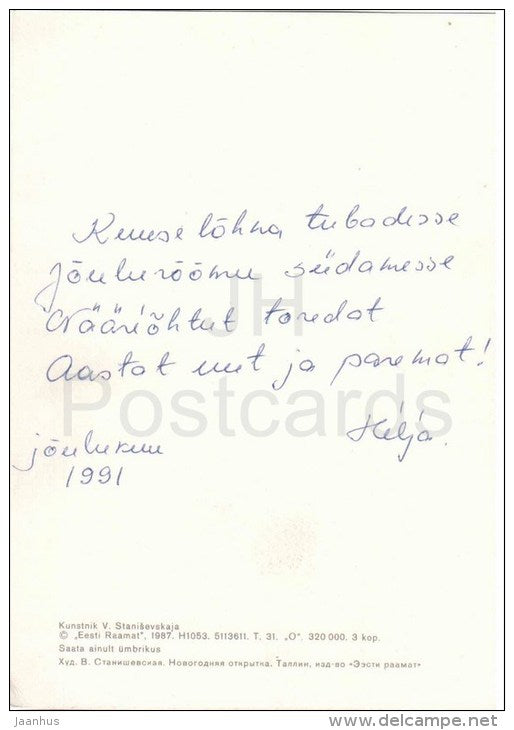 Kuuse lõhna tubadesse
Jõulurõõmu südamesse
Nääriõhtut toredat
Aastat uut ja paremat!
Hilja.
jõulukuu
1991
JH
Postcards
Kunstnik V. Staniševskaja
© „Eesti Raamat”, 1987. H1053. 5113611. T. 31. „O”. 320 000. 3 kop.
Saata ainult ümbrikus
Худ. В. Станишевская. Новогодняя открытка. Таллин, изд-во «Ээсти раамат»
jaanhus
delcampe.net